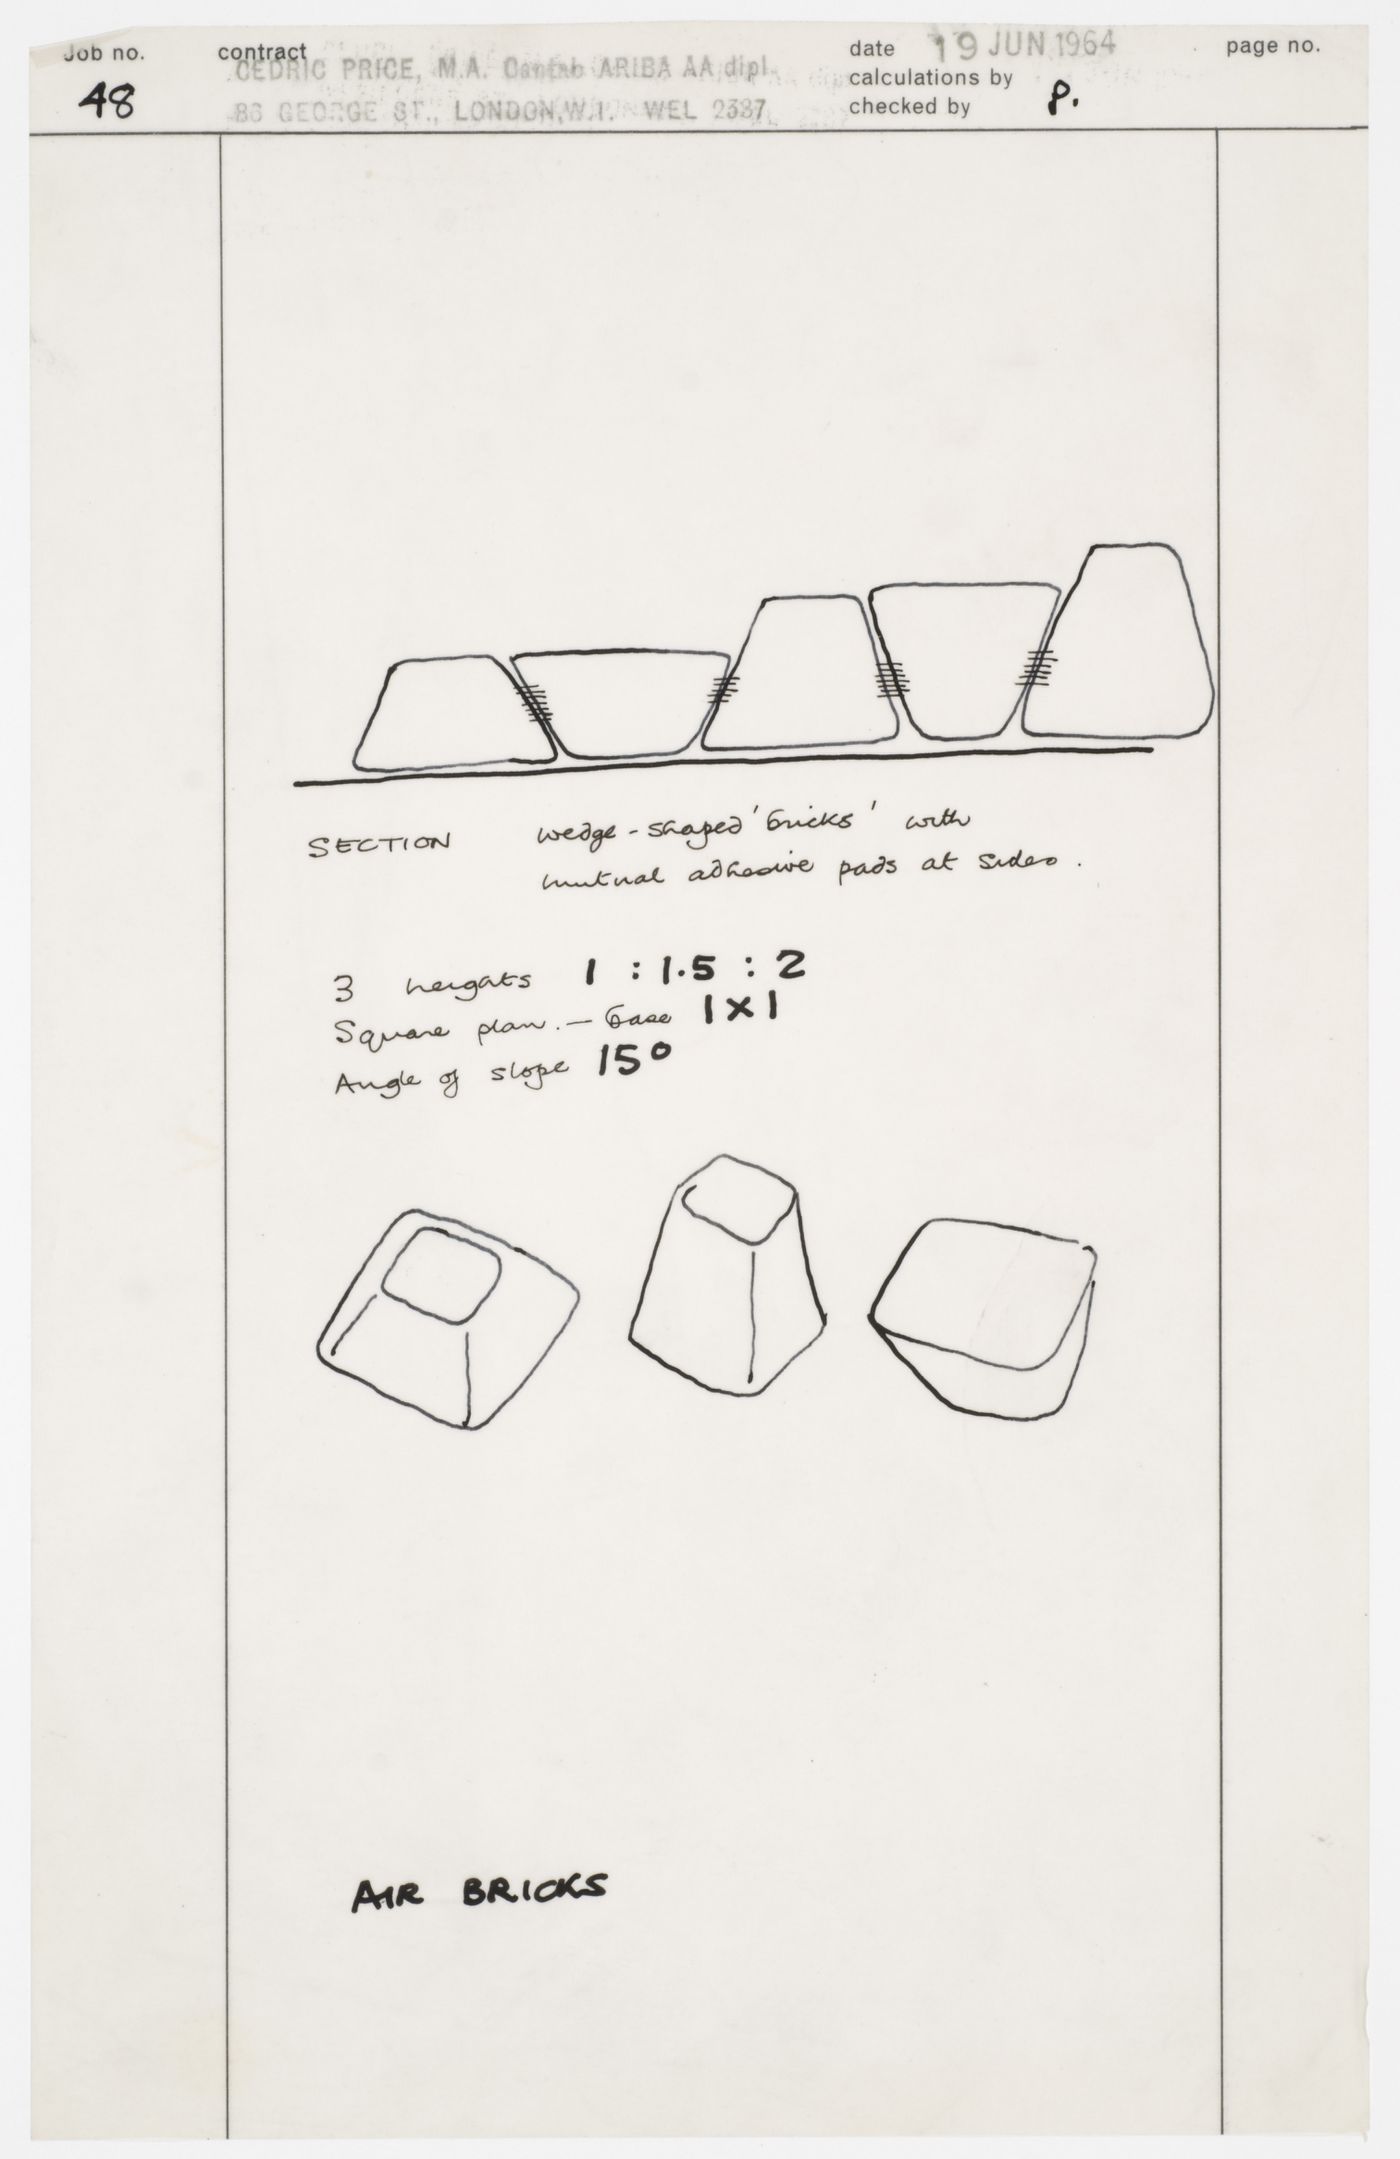 Job no.
contract
date 19 JUN 1964
page no.
CEDRIC PRICE, M.A. Cantab ARIBA AA dipl.
calculations by
48
86 GEORGE ST., LONDON, W.1. WEL 2387
checked by
P.
SECTION
wedge-shaped 'bricks' with
mutual adhesive pads at sides.
3 heights 1 : 1.5 : 2
Square plan. — base 1 x 1
Angle of slope 15°
AIR BRICKS